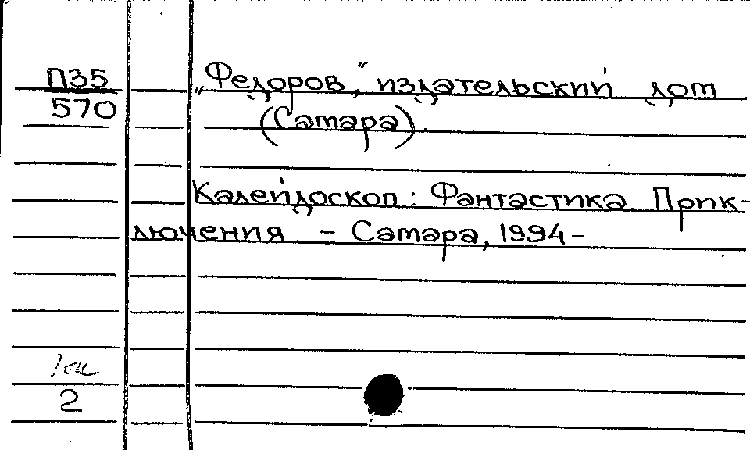 П35
570
„Федоров," издательский дом
(Самара).
Калейдоскоп: Фантастика Прик-
лючения – Самара, 1994–
2